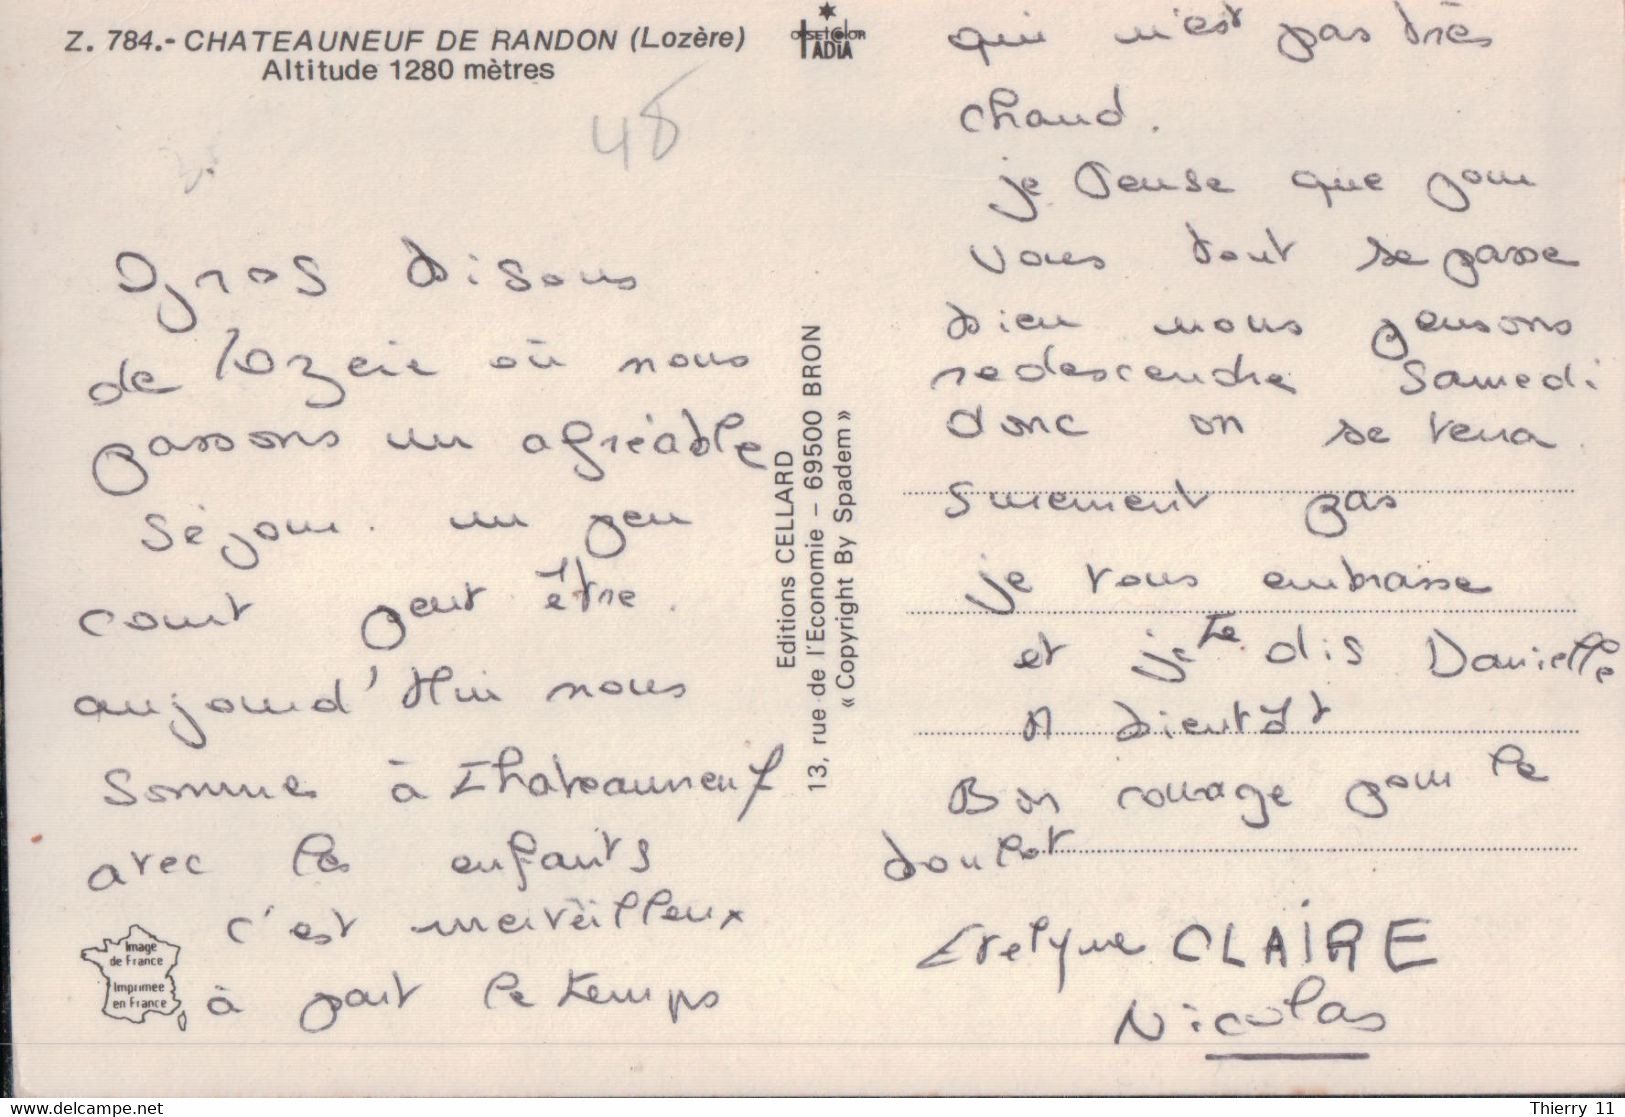 Z. 784.- CHATEAUNEUF DE RANDON (Lozère)
Altitude 1280 mètres
48
gros bisous
de lozère où nous
passons un agréable
séjour. un peu
court peut être.
aujourd'Hui nous
somme à Chateauneuf
avec les enfants
c'est merveilleux
à part le temps
Image
de France
Imprimée
en France
Editions CELLARD
13, rue de l'Economie – 69500 BRON
« Copyright By Spadem »
OffsetColor
IADIA
qui n'est pas très
chaud.
je Pense que pour
vous tout se passe
bien nous pensons
redescendre Samedi
donc on se verra
surement pas
je vous embrasse
et je te dis Danielle
A bientôt
Bon courage pour le
boulot
Evelyne CLAIRE
Nicolas
www.delcampe.net
Thierry 11